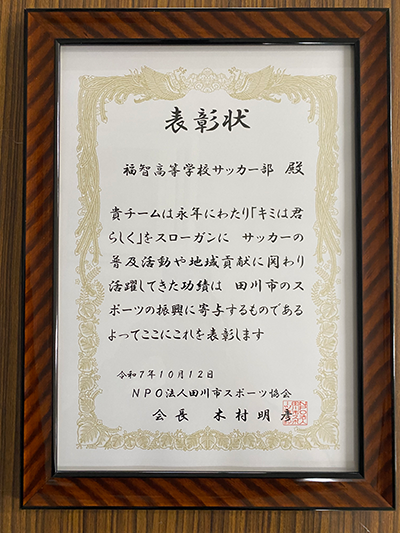 表彰状
福智高等学校サッカー部 殿
貴チームは永年にわたり「キミは君
らしく」をスローガンに サッカーの
普及活動や地域貢献に関わり
活躍してきた功績は 田川市のス
ポーツの振興に寄与するものである
よってここにこれを表彰します
令和7年10月12日
NPO法人田川市スポーツ協会
会長 木村明彦